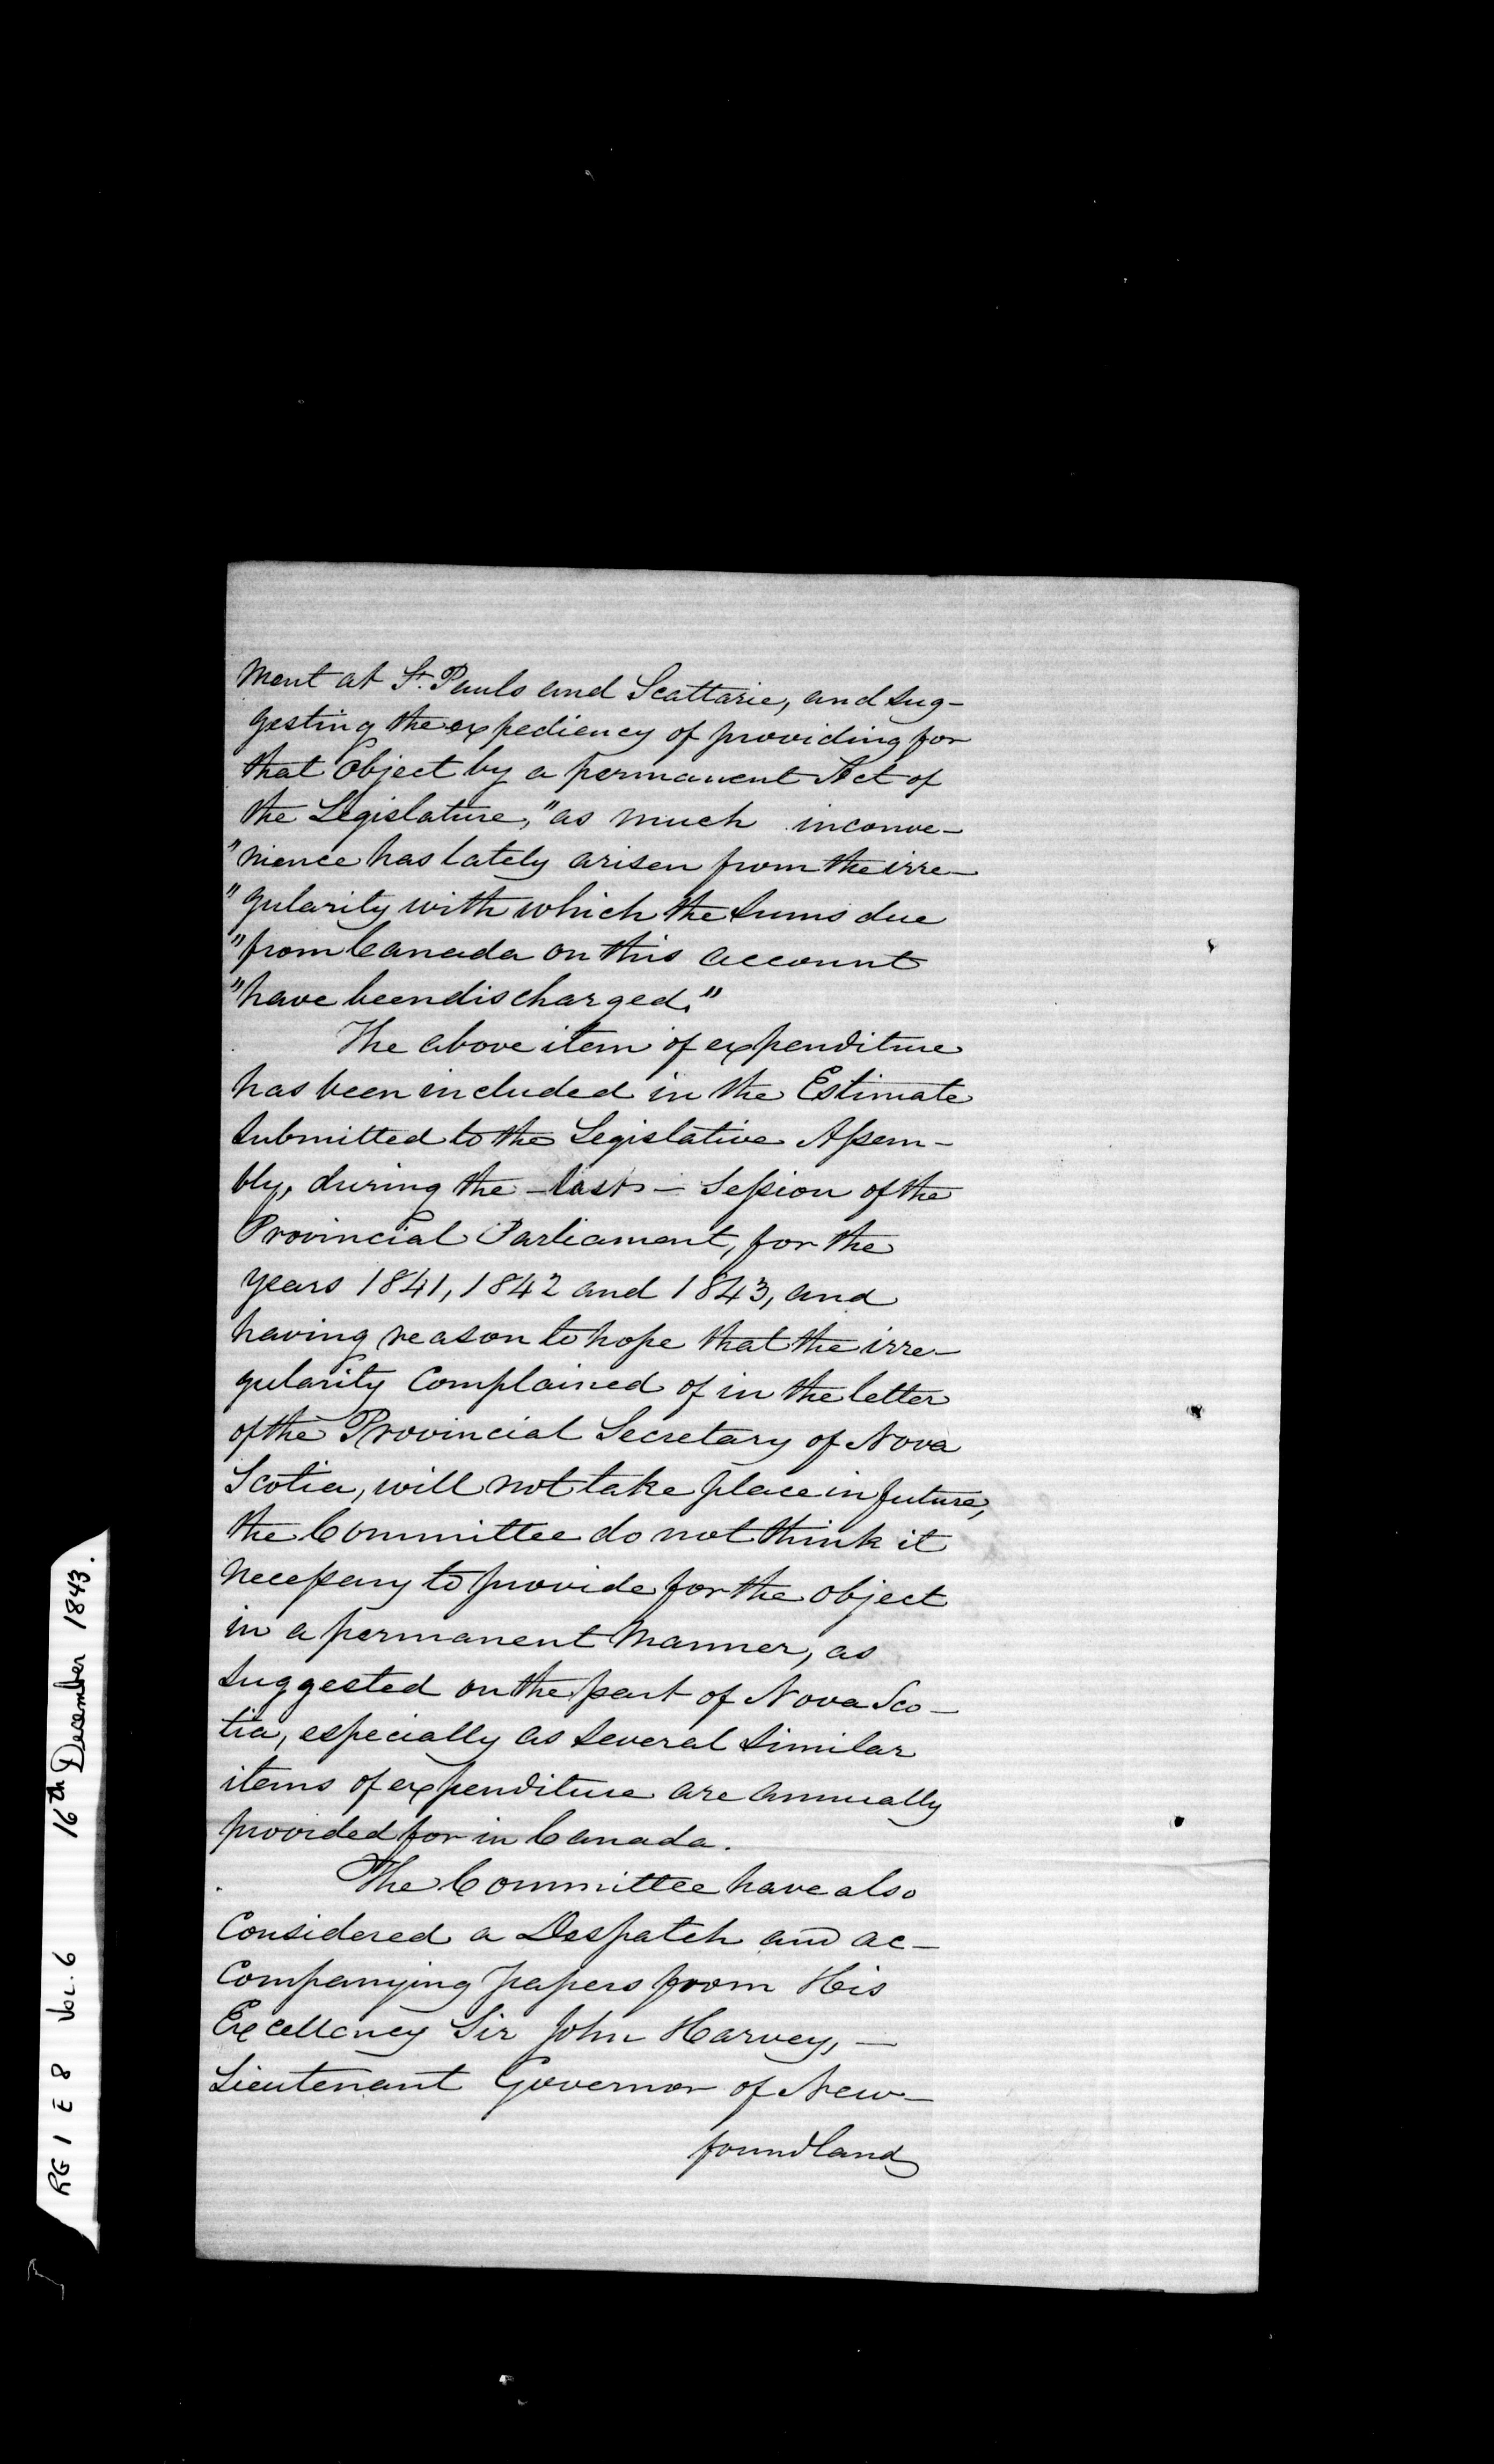 ment at St. Pauls and Scattarie, and sug-
gesting the expediency of providing for
that Object by a permanent Act of
the Legislature, "as much inconve-
"nience has lately arisen from the irre-
"gularity with which the sums due
"from Canada on this account
"have been discharged."
The above item of expenditure
has been included in the Estimate
submitted to the Legislative Assem-
bly, during the - last - Session of the
Provincial Parliament, for the
years 1841, 1842 and 1843, and
having reason to hope that the irre-
gularity Complained of in the letter
of the Provincial Secretary of Nova
Scotia, will not take place in future,
the Committee do not think it
necessary to provide for the object
in a permanent manner, as
suggested on the part of Nova Sco-
tia, especially as several similar
items of expenditure are annually
provided for in Canada.
The Committee have also
Considered a Despatch and ac-
companying papers from His
Excellency Sir John Harvey, -
Lieutenant Governor of New-
foundland
RG 1 E 8 Vol. 6 16th December 1843.